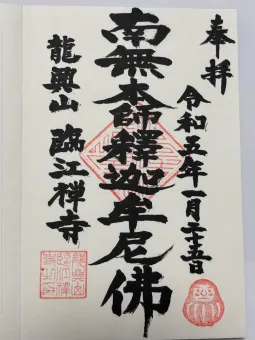 奉拝
令和五年一月二十五日
南無本師釋迦牟尼佛
龍興山 臨江禅寺